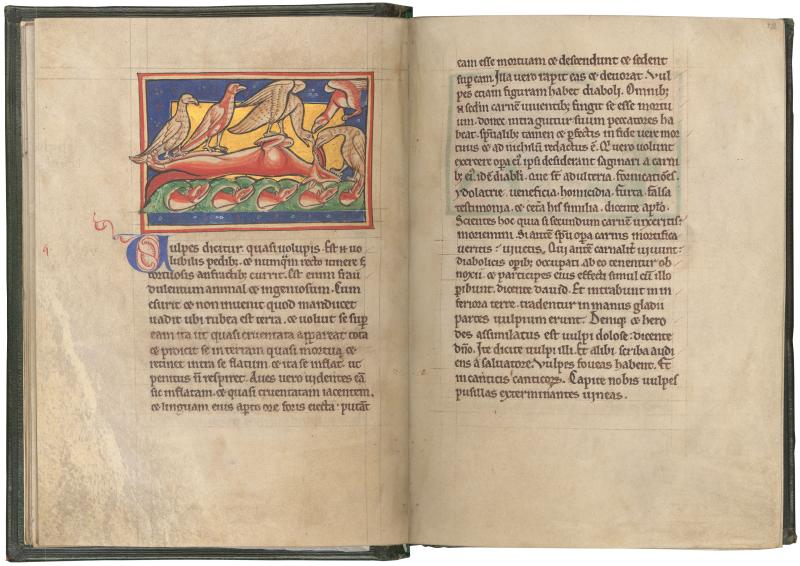 Vulpes dicitur quasi volupis. Est enim vo
lubilis pedibꝫ. ⁊ numq̄m recto itinere sꝫ
tortuosis anfractibꝫ currit. Est enim frau
dulentum animal ⁊ ingeniosum. Cum
esurit ⁊ non invenit quod manducet
uadit ubi rubea est terra. ⁊ uoluit se suꝑ
eam ita ut quasi cruentata appareat tota
⁊ proicit se in terram quasi mortua. ⁊
retinet intra se flatum ⁊ ita se inflat. ut
penitus n̄ respiret. Aues uero uidentes eā
sic inflatam. ⁊ quasi cruentatam iacentem.
⁊ linguam eius aꝑto ore foris eiecta. putāt
eam esse mortuam ⁊ descendunt ⁊ sedent
suꝑ eam. Illa uero rapit eas ⁊ deuorat. Vul
pes etiam figuram habet diaboli. Omnibꝫ
secdm̄ carnē uiuentibꝫ fingit se esse mortu
um. donec intra guttur suum peccatores ha
beat. spūalibꝫ tamen ⁊ ꝑfectis in fide uere mor
tuus ⁊ ad nichilū redactus ē. Qui uero uolunt
exercere opa eiꝰ ipsi desiderant saginari a carni
bꝫ eiꝰ id ē diaboli. que st̄ adulteria. fornicatiões.
ydolatrie. ueneficia. homicidia. furta. falsa
testimonia. ⁊ cetera his similia. dicente aplo.
Scientes hoc quia si secundum carnē uixeritis?
moriemini. Si autē sp̄u opera carnis mortifica
ueritis? uiuetis. Qui autē carnalit̄ uiuunt.
diabolicis opibꝫ occupati ab eo tenentur ob
noxii. ⁊ participes eius effecti simul cū illo
ꝑibunt. dicente dauid. Et intrabunt in in
feriora terre. tradentur in manus gladii
partes uulpium erunt. Deniqꝫ ⁊ hero
des assimilatus est uulpi dolose. dicente
dn̄o. Ite dicite uulpi illi. Et alibi. scriba audi
ens a saluatore. Vulpes foueas habent. Et
in canticis canticoꝝ. Capite nobis uulpes
pusillas exterminantes uineas.